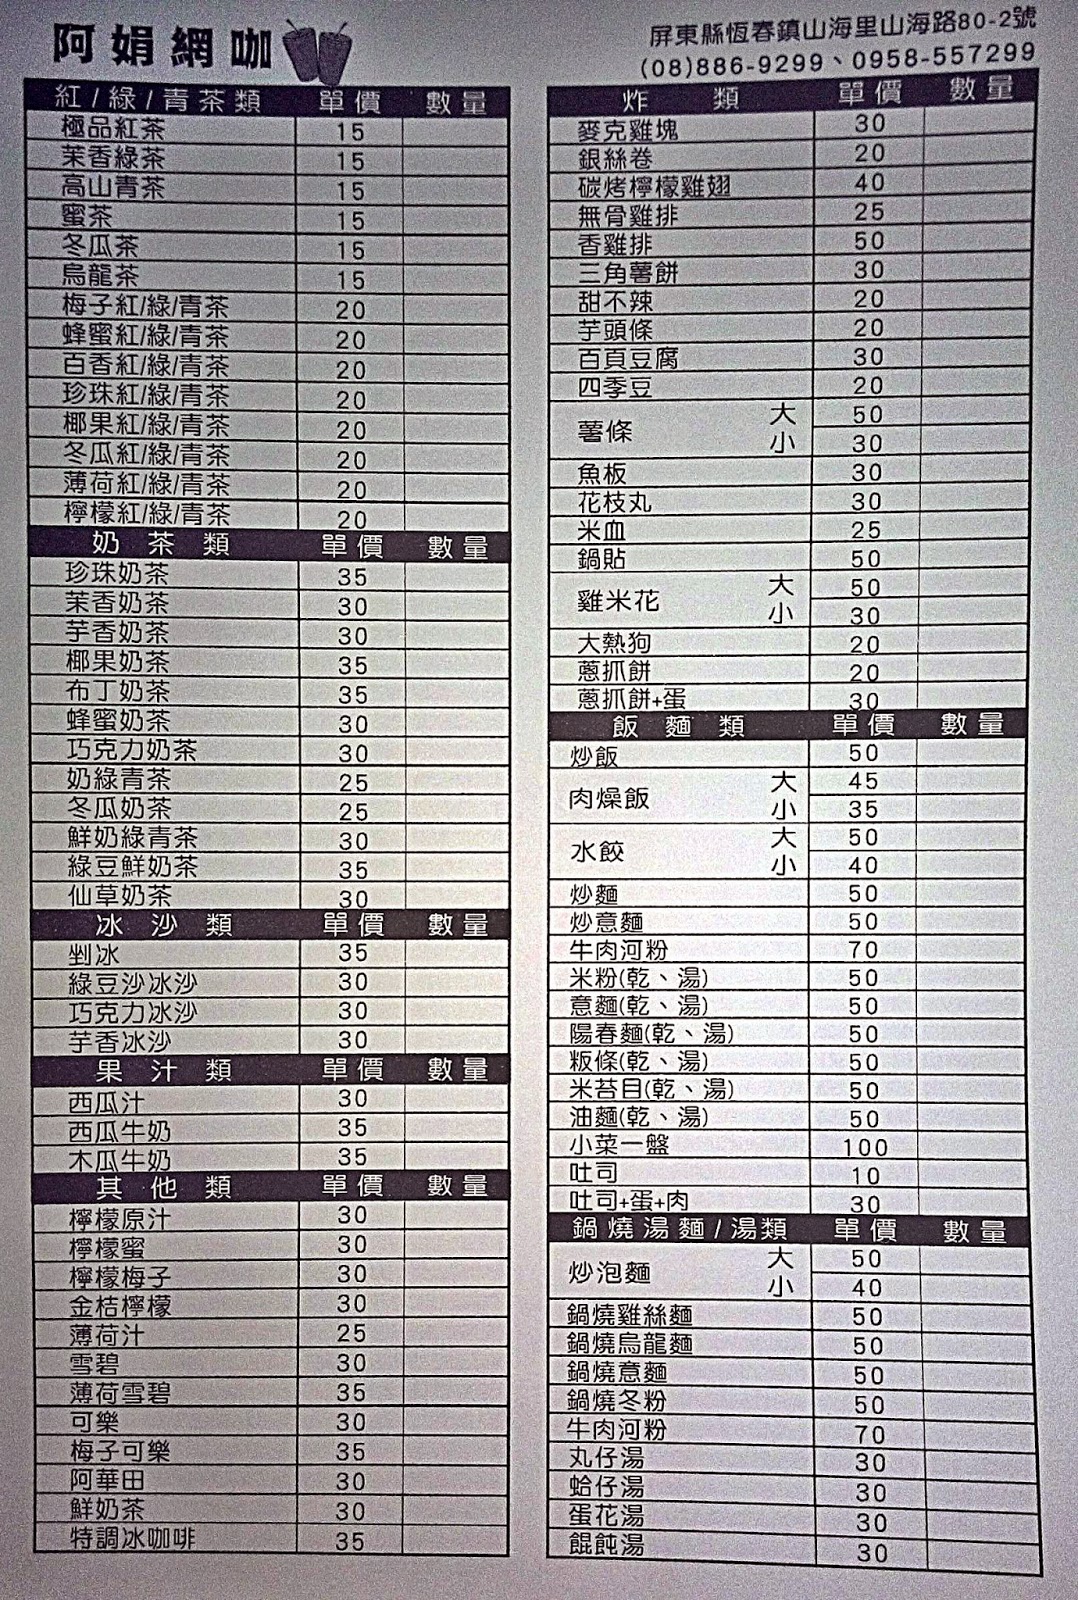 阿娟網咖
屏東縣恆春鎮山海里山海路80-2號
(08)886-9299、0958-557299
紅/綠/青茶類 單價 數量
極品紅茶 15
茉香綠茶 15
高山青茶 15
蜜茶 15
冬瓜茶 15
烏龍茶 15
梅子紅/綠/青茶 20
蜂蜜紅/綠/青茶 20
百香紅/綠/青茶 20
珍珠紅/綠/青茶 20
椰果紅/綠/青茶 20
冬瓜紅/綠/青茶 20
薄荷紅/綠/青茶 20
檸檬紅/綠/青茶 20
奶茶類 單價 數量
珍珠奶茶 35
茉香奶茶 30
芋香奶茶 30
椰果奶茶 35
布丁奶茶 35
蜂蜜奶茶 30
巧克力奶茶 30
奶綠青茶 25
冬瓜奶茶 25
鮮奶綠青茶 30
綠豆鮮奶茶 35
仙草奶茶 30
冰沙類 單價 數量
剉冰 35
綠豆沙冰沙 30
巧克力冰沙 30
芋香冰沙 30
果汁類 單價 數量
西瓜汁 30
西瓜牛奶 35
木瓜牛奶 35
其他類 單價 數量
檸檬原汁 30
檸檬蜜 30
檸檬梅子 30
金桔檸檬 30
薄荷汁 25
雪碧 30
薄荷雪碧 35
可樂 30
梅子可樂 35
阿華田 30
鮮奶茶 30
特調冰咖啡 35
炸類 單價 數量
麥克雞塊 30
銀絲卷 20
碳烤檸檬雞翅 40
無骨雞排 25
香雞排 50
三角薯餅 30
甜不辣 20
芋頭條 20
百頁豆腐 30
四季豆 20
薯條 大 50
小 30
魚板 30
花枝丸 30
米血 25
鍋貼 50
雞米花 大 50
小 30
大熱狗 20
蔥抓餅 20
蔥抓餅+蛋 30
飯麵類 單價 數量
炒飯 50
肉燥飯 大 45
小 35
水餃 大 50
小 40
炒麵 50
炒意麵 50
牛肉河粉 70
米粉(乾、湯) 50
意麵(乾、湯) 50
陽春麵(乾、湯) 50
粄條(乾、湯) 50
米苔目(乾、湯) 50
油麵(乾、湯) 50
小菜一盤 100
吐司 10
吐司+蛋+肉 30
鍋燒湯麵/湯類 單價 數量
炒泡麵 大 50
小 40
鍋燒雞絲麵 50
鍋燒烏龍麵 50
鍋燒意麵 50
鍋燒冬粉 50
牛肉河粉 70
丸仔湯 30
蛤仔湯 30
蛋花湯 30
餛飩湯 30